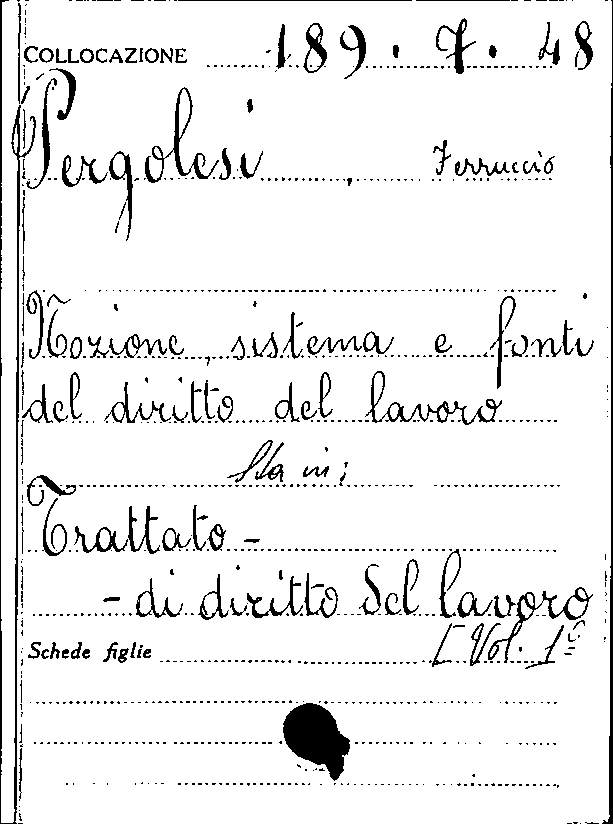 COLLOCAZIONE 189 . 7 . 48
Pergolesi , Ferruccio
Nozione, sistema e fonti
del diritto del lavoro
Sta in:
Trattato -
- di diritto del lavoro
Schede figlie [Vol. 1º